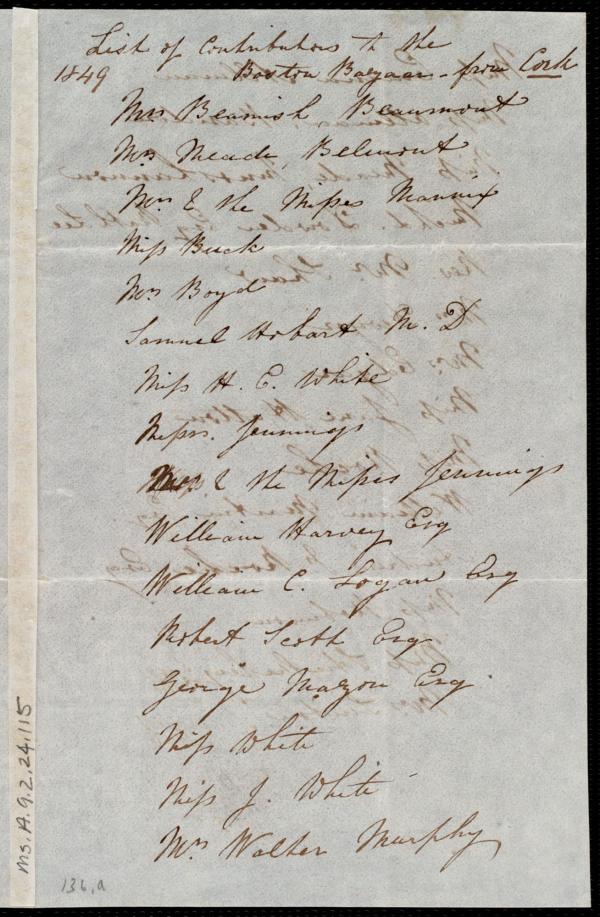 List of Contributors to the
1849 Boston Bazaar - from Cork
Mrs Beamish Beaumont
Mrs Meade, Belmont
Mrs & the Misses Mannix
Miss Buck
Mrs Boyd
Samuel Hobart M. D
Miss H. E. White
Messrs. Jennings
Mrs & the Misses Jennings
William Harvey Esq
William C. Logan Esq
Robert Scott Esq
George Mazon Esq
Miss White
Miss J. White
Mrs Walter Murphy
Ms. A. 9. 2. 24, 115
136, a